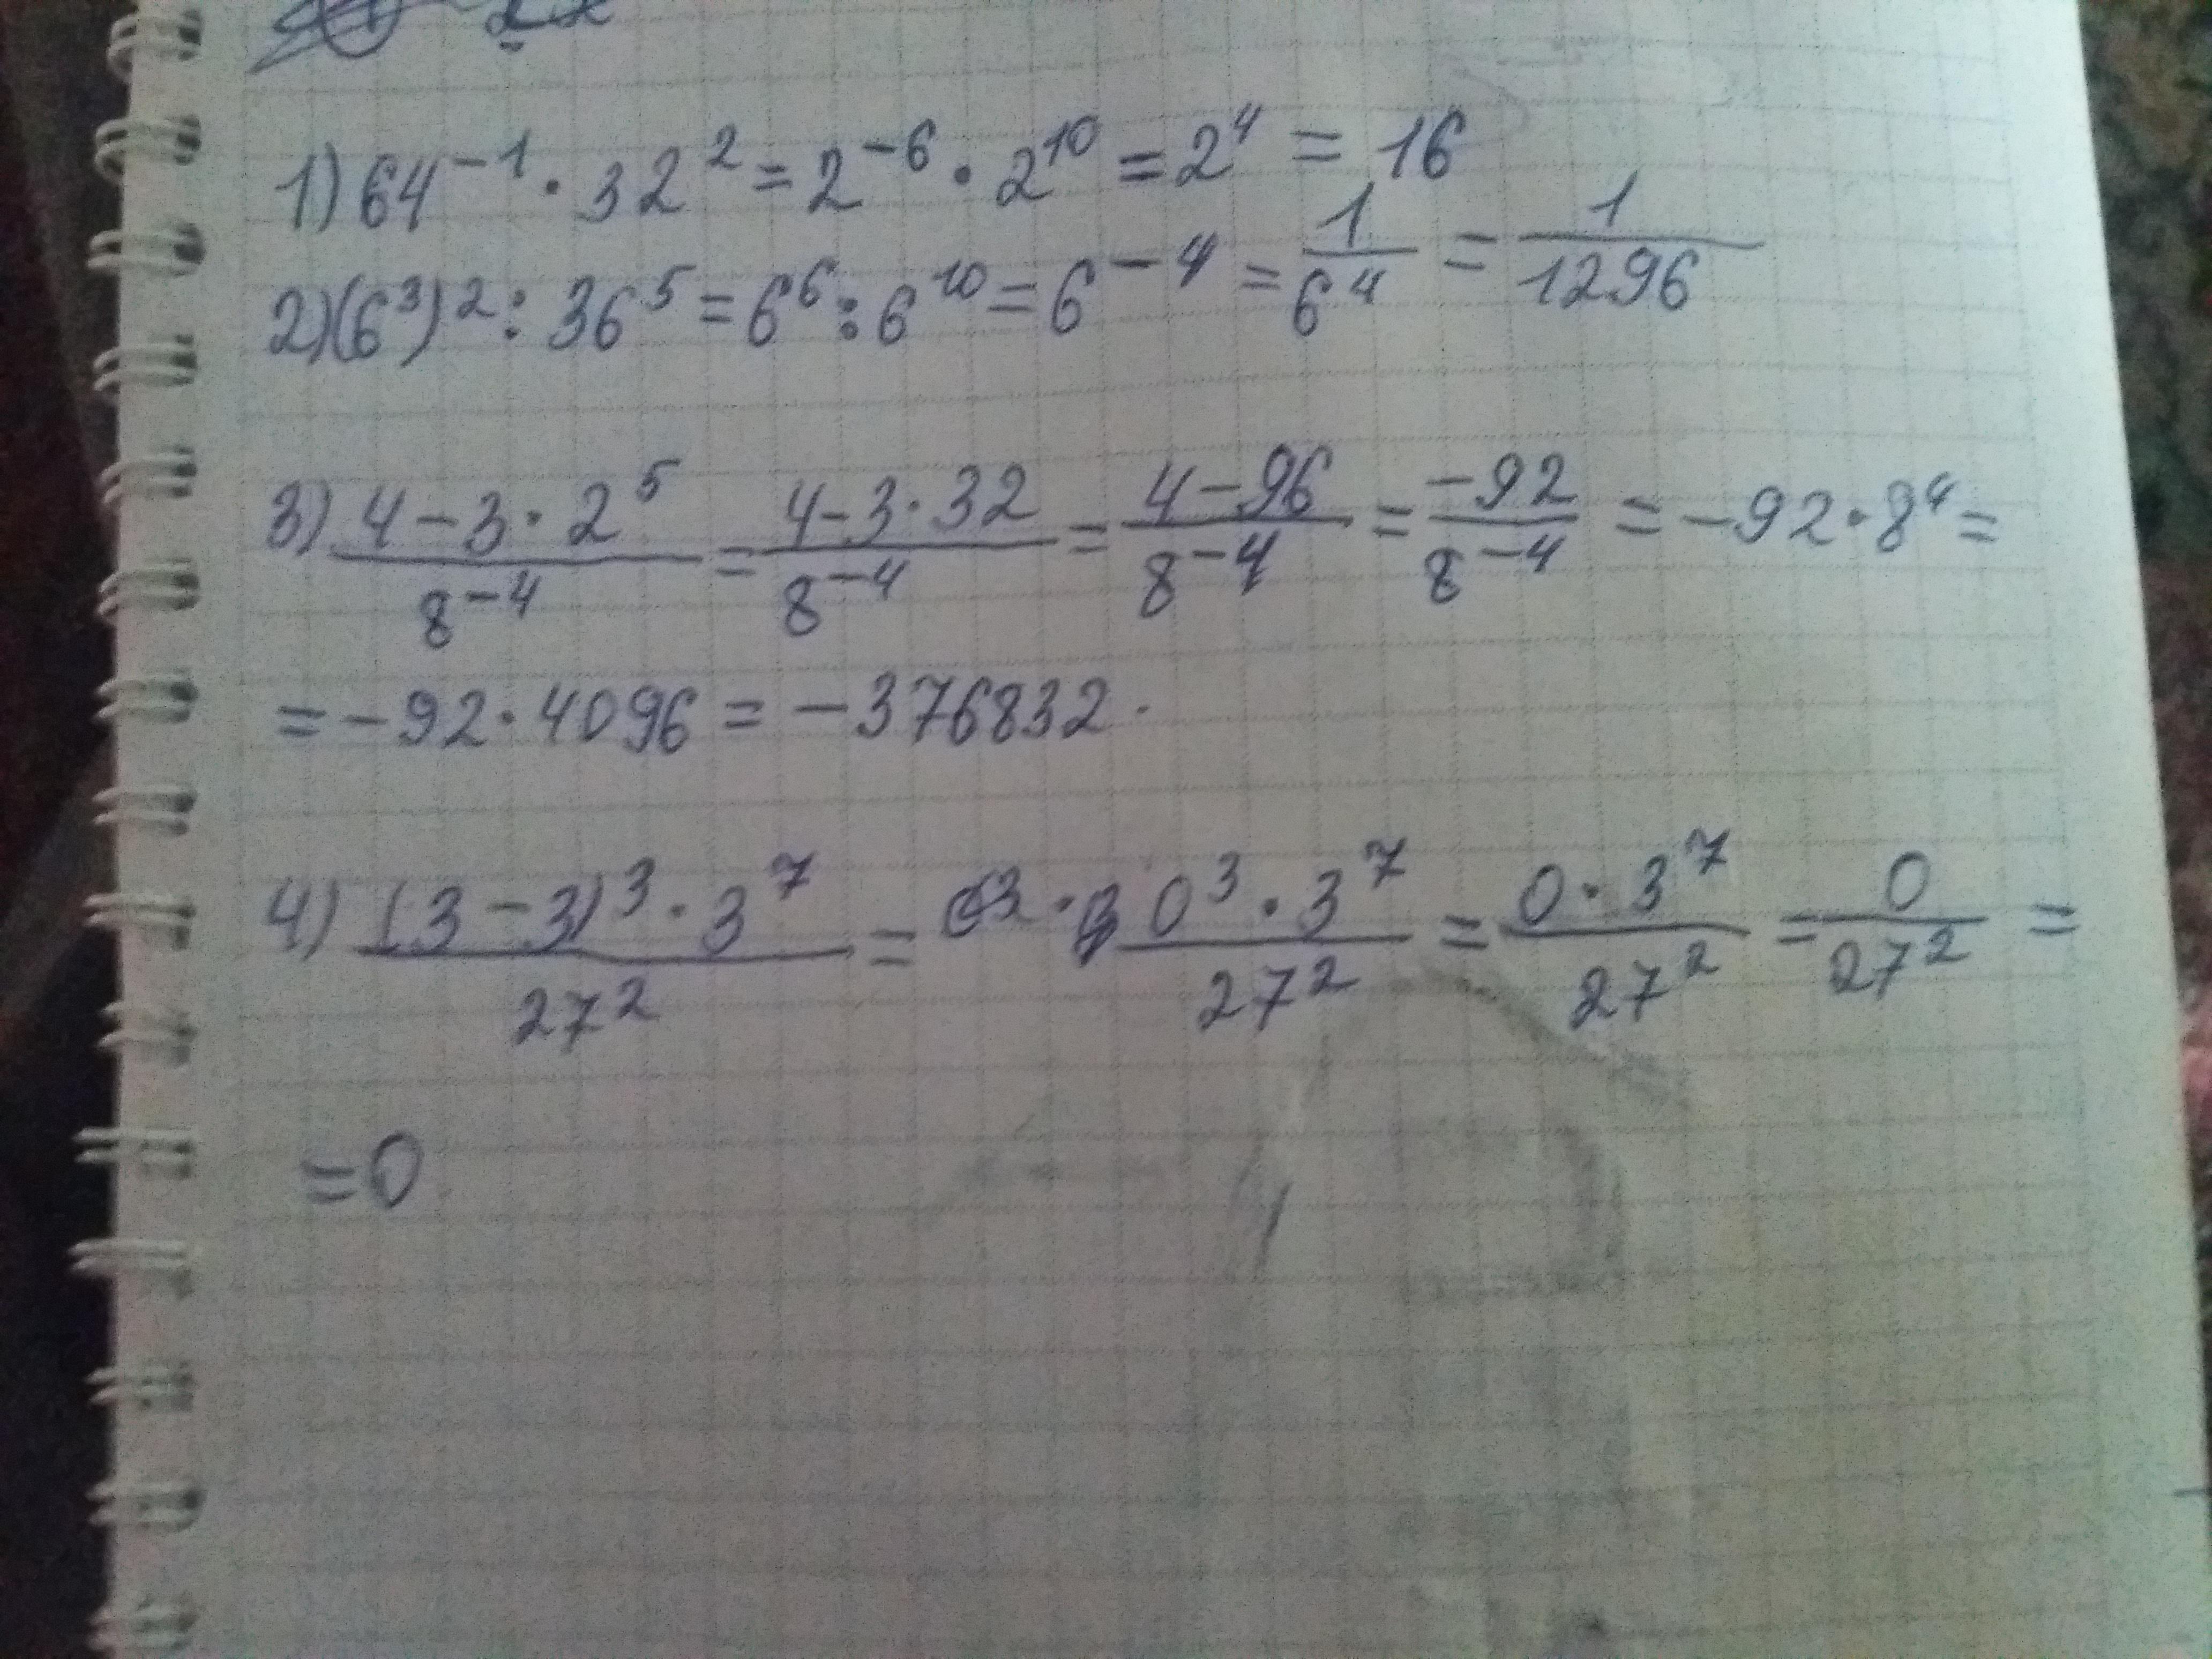 1) 64⁻¹ · 32² = 2⁻⁶ · 2¹⁰ = 2⁴ = 16
2) (6³)² : 36⁵ = 6⁶ : 6¹⁰ = 6⁻⁴ = 1/6⁴ = 1/1296
3) (4 - 3 · 2⁵)/8⁻⁴ = (4 - 3 · 32)/8⁻⁴ = (4 - 96)/8⁻⁴ = -92/8⁻⁴ = -92 · 8⁴ =
= -92 · 4096 = -376832.
4) ((3 - 3)³ · 3⁷)/27² = (0³ · 3⁷)/27² = (0 · 3⁷)/27² = 0/27² =
= 0